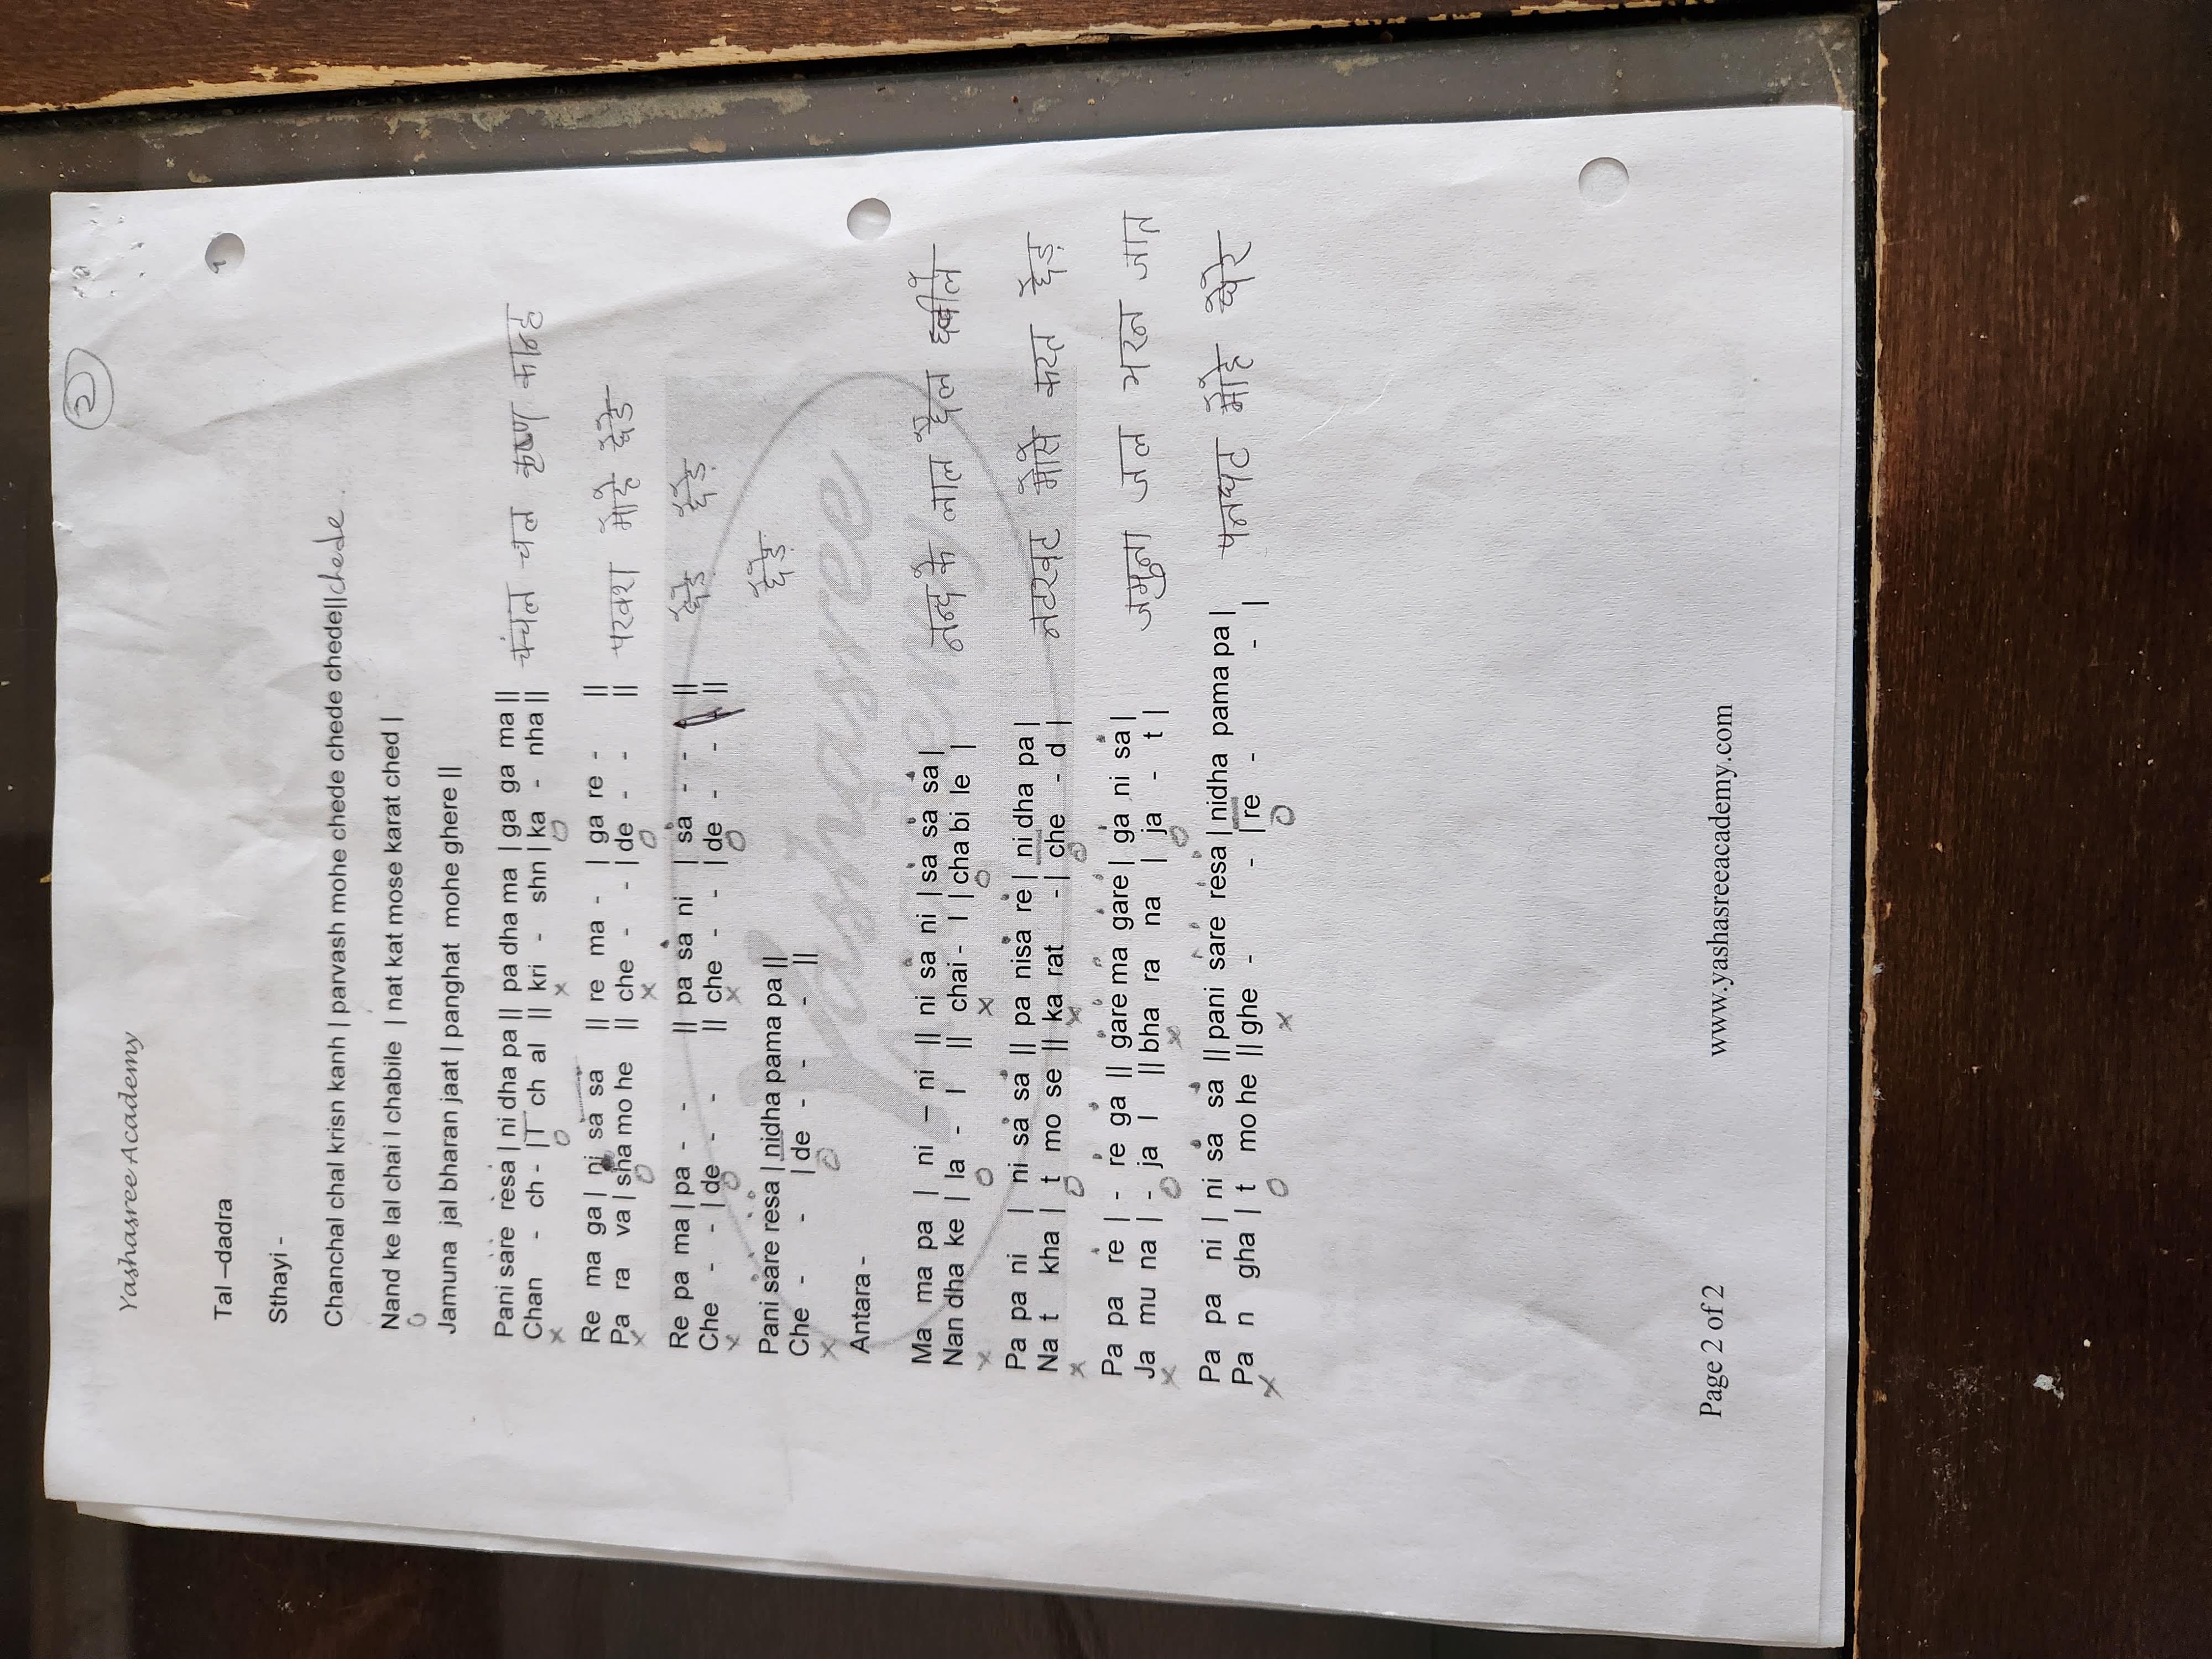 2
Yashasree Academy
Tal –dadra
Sthayi -
Chanchal chal krisn kanh | parvash mohe chede chede chede|| chede
Nand ke lal chai l chabile | nat kat mose karat ched |
0
Jamuna jal bharan jaat | panghat mohe ghere ||
Pani sȧrė rėsȧ | ni dha pa || pa dha ma | ga ga ma ||
Chan - ch - | T ch al || kri - shn | ka - nha || चंचल चल कृष्ण कान्ह
x o x o
Re ma ga | ni sa sa || re ma - | ga re - ||
Pa ra va | sha mo he || che - - | de - - || परवश मोहे छेडे
x o x o
Re pa ma | pa - - || pa sȧ ni | sȧ - - ||
Che - - | de - - || che - - | de - - - || छेडे छेड़े
x o x o
Pani sȧrė rėsȧ | nidha pama pa || छेड़े
Che - - | de - - - ||
x o
Yashasree Academy
Antara -
Ma ma pa | ni – ni || ni sȧ ni | sȧ sȧ sȧ |
Nan dha ke | la - l || chai - l | cha bi le | नन्द के लाल छैल छबीले
x o x o
Pa pa ni | ni sȧ sȧ || pa nisȧ rė | ni dha pa |
Na t kha | t mo se || ka rat - | che - d | नटखट मोसे करत छेड़
x o x o
Pa pa rė | - rė gȧ || gȧrė mȧ gȧrė | gȧ ni sȧ |
Ja mu na | - ja l || bha ra na | ja - t | जमुना जल भरन जात
x o x o
Pa pa ni | ni sȧ sȧ || pani sȧrė rėsȧ | nidha pama pa |
Pa n gha | t mo he || ghe - - | re - - | पनघट मोहे घेरे
x o x o
Page 2 of 2 www.yashasreeacademy.com